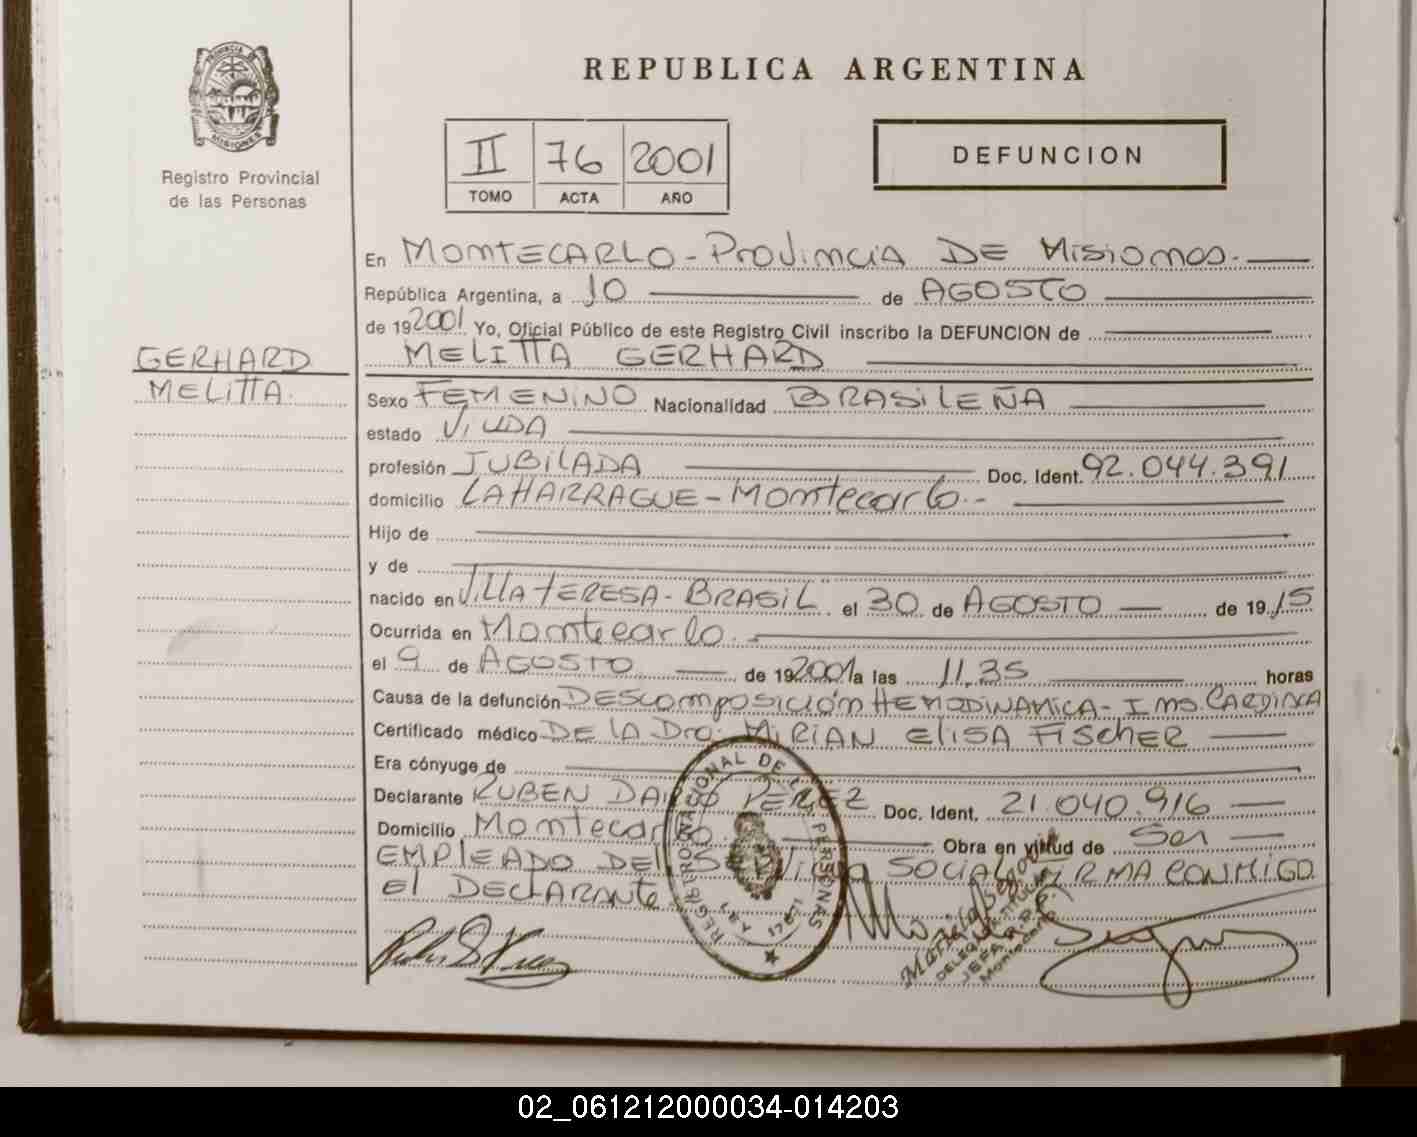 PROVINCIA DE
MISIONES
Registro Provincial
de las Personas
REPUBLICA ARGENTINA
II 76 2001
TOMO ACTA AÑO
DEFUNCION
En MONTECARLO - Provincia DE Misiones.
República Argentina, a 10 de AGOSTO
de 192001 Yo, Oficial Público de este Registro Civil inscribo la DEFUNCION de
MELITTA GERHARD
GERHARD
MELITTA.
Sexo FEMENINO Nacionalidad BRASILEÑA
estado VIUDA
profesión JUBILADA Doc. Ident. 92.044.391
domicilio LAHARRAGUE - Montecarlo.-
Hijo de
y de
nacido en Villa TERESA - BRASIL. el 30 de AGOSTO de 1915
Ocurrida en Montecarlo.
el 9 de AGOSTO de 192001 a las 11.35 horas
Causa de la defunción DESComposición HEMODINAMICA - Ins. CARDIACA
Certificado médico DE LA Dra. MIRIAN ELISA FISCHER
Era cónyuge de
Declarante RUBEN DARIO PEREZ Doc. Ident. 21.040.916
Domicilio Montecarlo. Obra en virtud de Ser
EMPLEADO DEL SERVICIO SOCIAL FIRMA CONMIGO
El DECLARANTE.
REGISTRO NACIONAL DE LAS PERSONAS
DELEGADA TITULAR
JEFA R.P.P.
Montecarlo
02_061212000034-014203